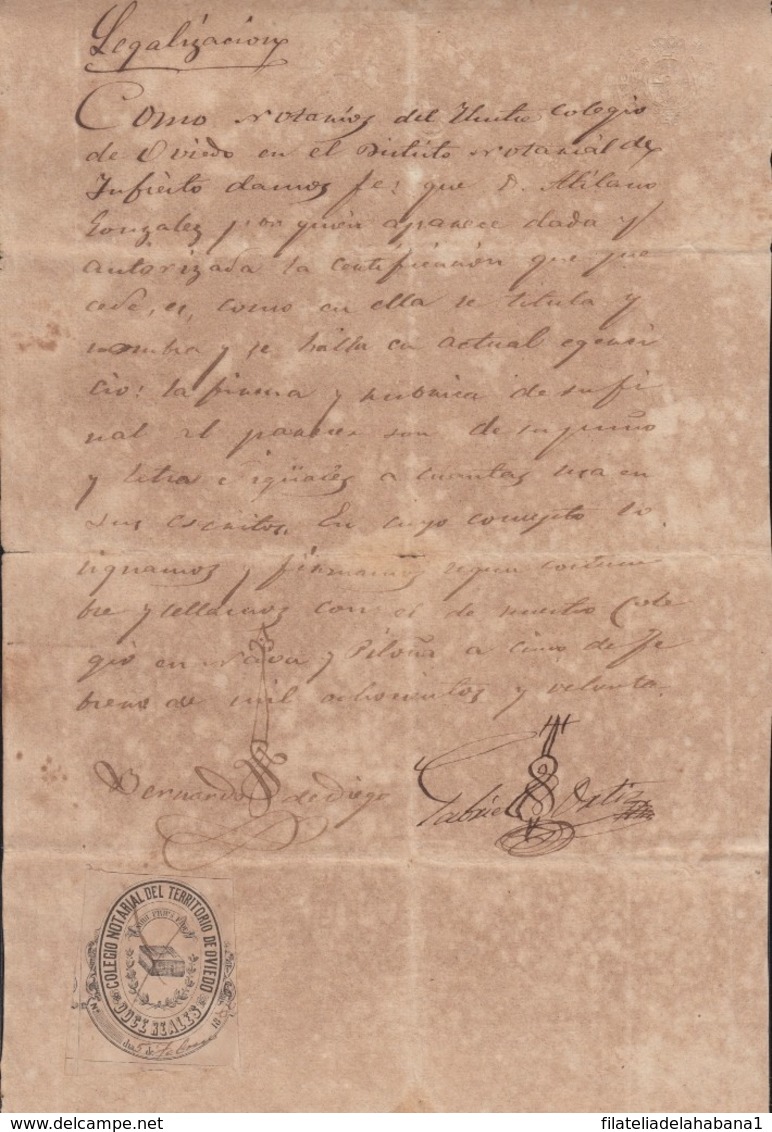 Legalizacion
Como Notarios del Ilustre Colegio
de Oviedo en el Distrito Notarial de
Infiesto damos fe: que D. Atilano
Gonzalez por quien aparece dada y
autorizada la certificación que pre
cede, es, como en ella se titula y
nombra y se halla en actual egerci
cio: la firma y rubrica de su fi
nal al parecer son de su puño
y letra e iguales a cuantas usa en
sus escritos. En cuyo concepto lo
signamos y firmamos segun costum
bre y sellamos con el de nuestro Cole
gio en Nava y Piloña a cinco de Fe
brero de mil ochocientos y
Bernardo de Diego
Gabriel Ortiz
COLEGIO NOTARIAL DEL TERRITORIO DE OVIEDO
NIHIL PRIUS FIDE
DOCE REALES
Nº
día 5 de Febrero 18
filateliadelahabana1